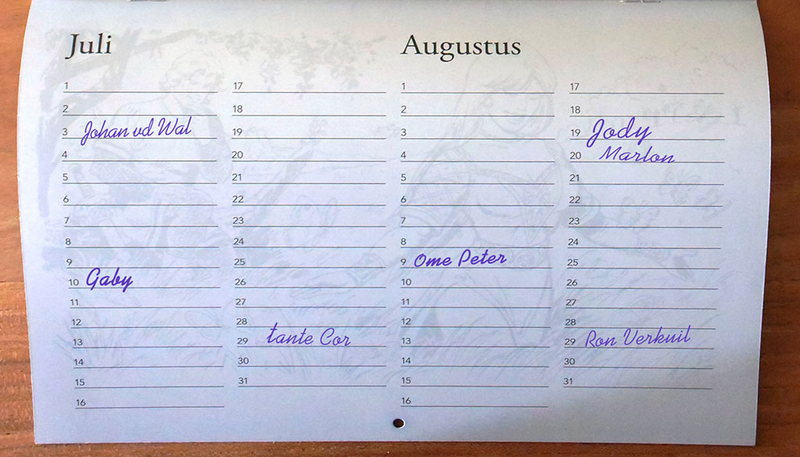 Juli
1
2
3 Johan vd Wal
4
5
6
7
8
9
10 Gaby
11
12
13
14
15
16
17
18
19
20
21
22
23
24
25
26
27
28
29 tante Cor
30
31
Augustus
1
2
3
4
5
6
7
8
9 Ome Peter
10
11
12
13
14
15
16
17
18
19 Jody
20 Marlon
21
22
23
24
25
26
27
28
29 Ron Verkuil
30
31